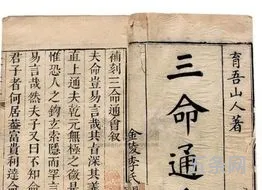 育吾山人著
三命通
金陵李氏
補刻三命通會敘
夫命豈易言哉其旨深其義
直上通夫乾元無極之微是
惟恐人之鈎玄索隱而罕言
易言哉然夫子又曰不知命
君子者何居蓋富貴利達命